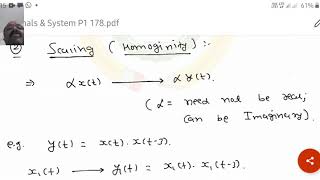 :15
61%
nals & System P1 178.pdf
② Scaling (Homoginity) :-
⇒ α x(t) ⟶ α y(t).
(α = need not be real;
can be Imaginary).
e.g. y(t) = x(t). x(t-3).
x₁(t) ⟶ y₁(t) = x₁(t). x₁(t-3).